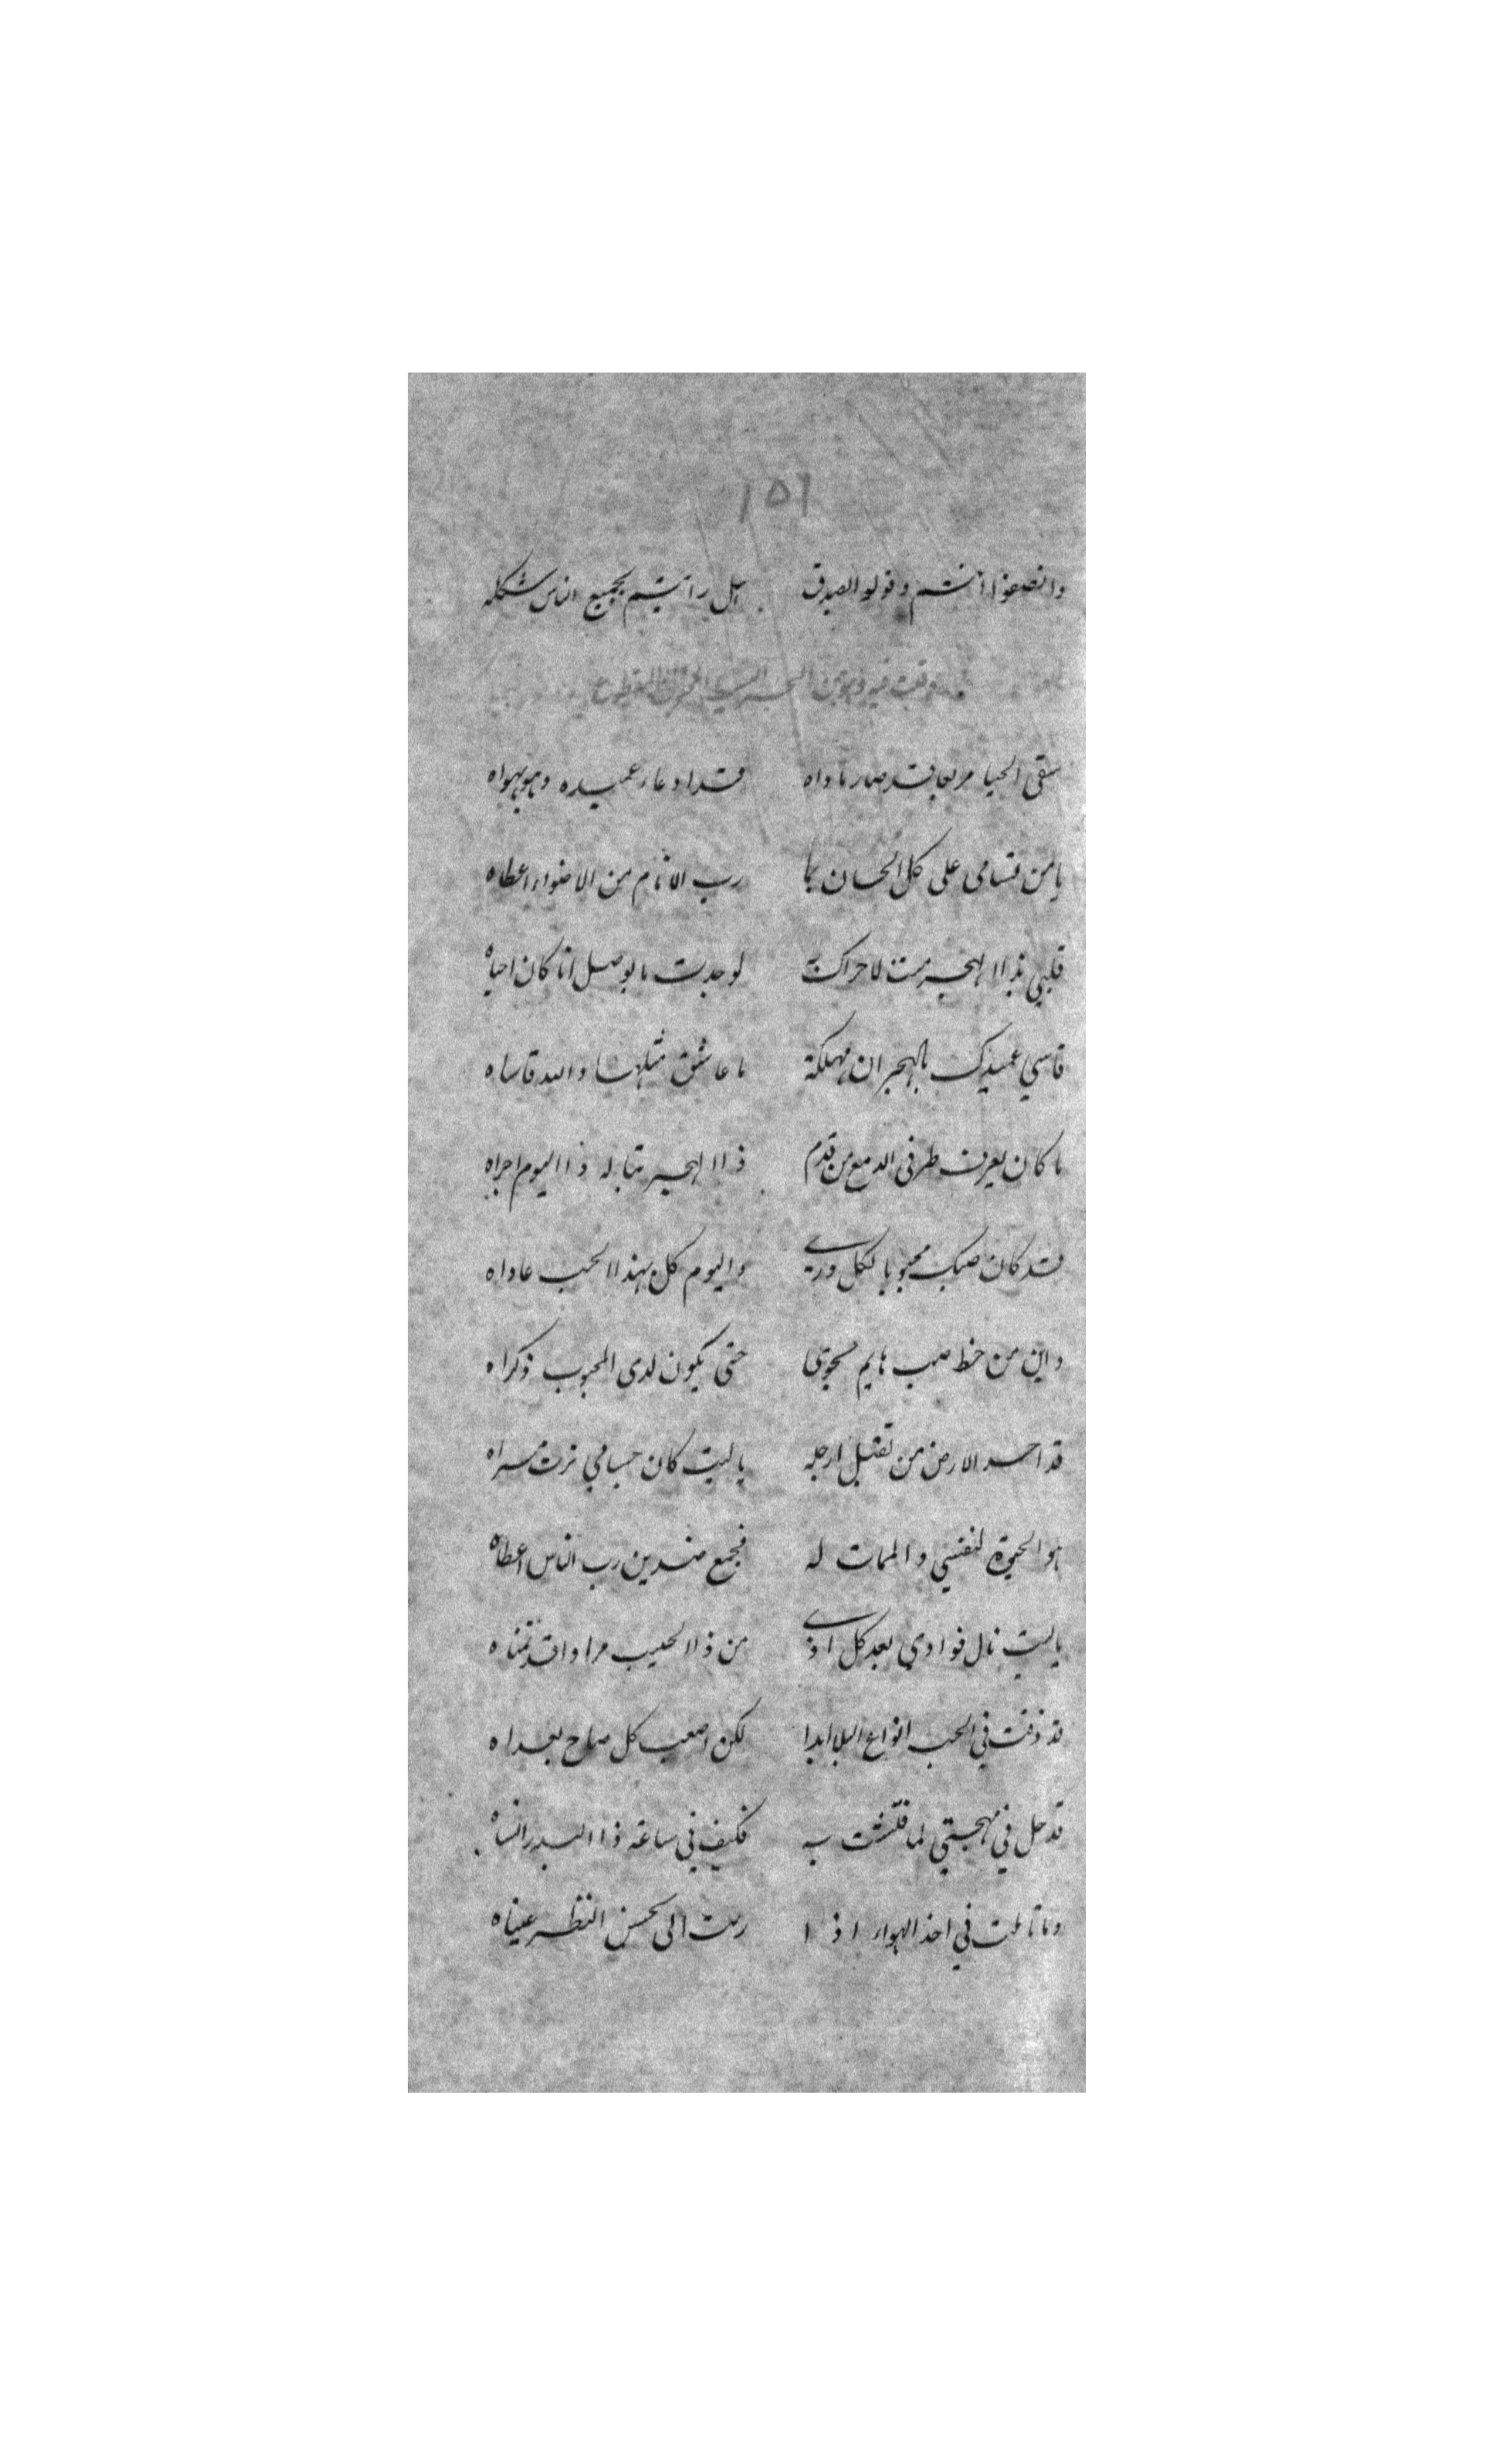 ١٥٦
وانصفوا انتم وقولو الصدق هل رأيتم بجميع الناس شكله
وقلت فيه وهو من البحر البسيط المقطوع
سقى الحيا مربعا قد صار ماواه قد ادعاء عميده وهو يهواه
يا من تسامى على كل الحسان بما رب الانام من الاضواء اعطاه
قلبي بذا الهجر ميت لا حراك به لو جدت بالوصل انا كان احياه
قاسي عميدك بالهجران مهلكة ما عاشق مثلها والله قاساه
ما كان يعرف طرفى الدمع من قدم ذا الهجر قباله ذا اليوم اجراه
قد كان صبك محبوبا لكل ورى واليوم كل بهذا الحب عاداه
واين من حظ صب هايم بجوى حتى يكون لدى المحبوب ذكراه
قد احسد الارض من تقبل ارجله يا ليت كان جسامي ترب مسراه
هو الحيوة لنفسي والممات له فجمع ضدين رب الناس اعطاه
يا ليت نال فوادي بعد كل اذى من ذا الحبيب مرادا قد تمناه
قد ذقت في الحب انواع البلا ابدا لكن اصعب كل صاح بعداه
قد حل في مهجتي لما فتنت به فكيف في ساعة ذا البدر انساه
وما تاملت في اخذ الهواء اذا رمت الى بحسن النظر عيناه